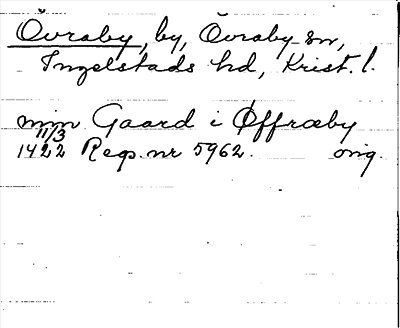 Övraby, by, Övraby sn,
Ingelstads hd, Krist. l.
min Gaard i Øffræby
11/3
1422 Regs. nr 5962. orig.